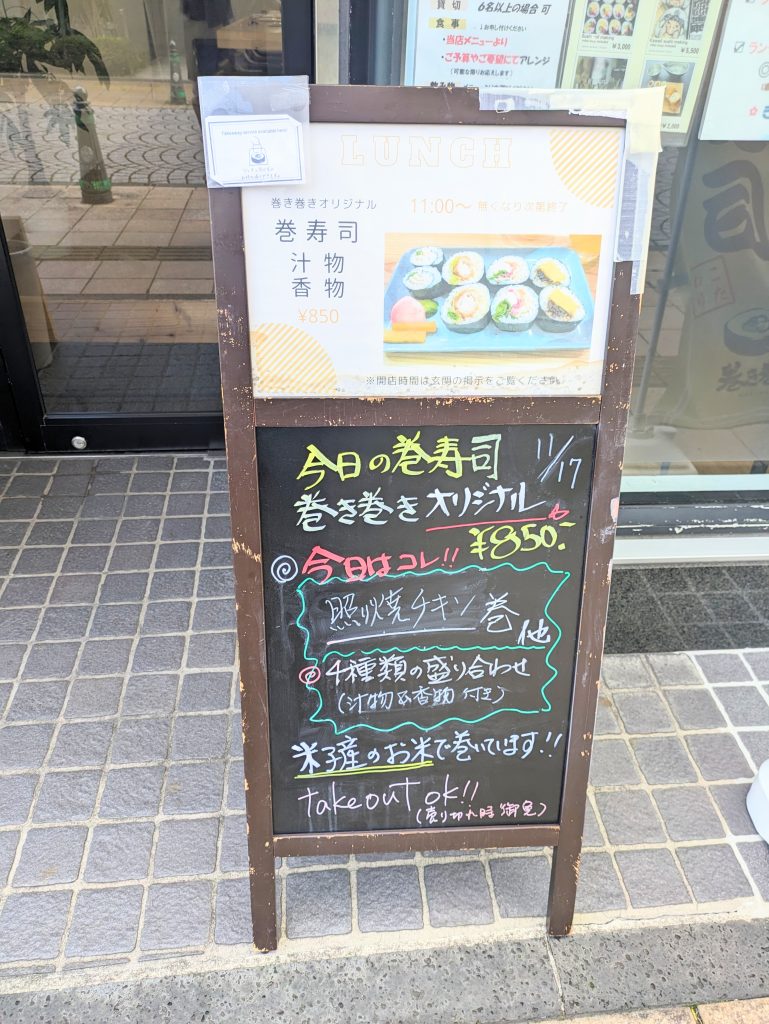 貸切 6名以上の場合 可
食事 ↓お申し付けください
・当店メニューより
・ご予算やご要望にてアレンジ
(可能な限りお応えします)
¥3,000
¥5,500
Takeaway service available here!
LUNCH
巻き巻きオリジナル
11:00〜 無くなり次第終了
巻寿司
汁物
香物
¥850
※開店時間は玄関の掲示をご覧ください。
今日の巻寿司 11/17
巻き巻きオリジナル
¥850.-
今日はコレ!!
照り焼チキン巻
他
4種類の盛り合わせ
(汁物&香物付き)
米子産のお米で巻いています!!
takeout ok!!
(売り切れ時御免)
司
巻き巻